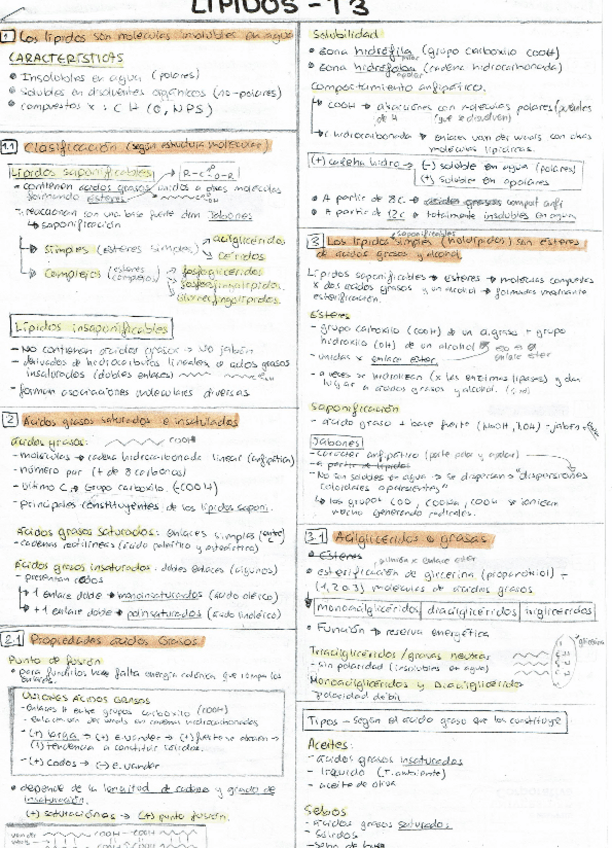 LÍPIDOS - T3
1 Los lípidos son moléculas insolubles en agua
CARACTERÍSTICAS
Insolubles en agua (polares)
solubles en disolventes orgánicos (no-polares)
compuestos x: C H (O, N P S)
1.1 Clasificación (según estructura molecular)
Lípidos saponificables
contienen ácidos grasos unidos a otras moléculas
formando ésteres
reaccionan con una base fuerte dan jabones
saponificación
Simples (ésteres simples)
acilglicéridos
céridos
Complejos (ésteres complejos)
fosfoglicéridos
fosfoesfingolípidos
glucoesfingolípidos
Lípidos insaponificables
- NO contienen ácidos grasos → No jabón
- derivados de hidrocarburos lineales o ácidos grasos
insaturados (dobles enlaces)
- forman asociaciones moleculares diversas
2 Ácidos grasos saturados e insaturados
ácidos grasos: COOH
- moléculas → cadena hidrocarbonada linear (anfipática)
- número par (+ de 8 carbonos)
- último C → Grupo carboxilo (-COOH)
- principales constituyentes de los lípidos saponi.
Ácidos grasos saturados: enlaces simples
- cadenas rectilíneas (ácido palmítico y esteárico)
Ácidos grasos insaturados: dobles enlaces (algunos)
- presentan codos
1 enlace doble → monoinsaturados (ácido oleico)
+1 enlace doble → poliinsaturados (ácido linoleico)
2.1 Propiedades ácidos Grasos
Punto de fusión
para fundirlos hace falta energía calórica que rompa los
enlaces.
UNIONES ÁCIDOS GRASOS
- Enlaces H entre grupos carboxilo (COOH)
- Enlaces van der waals en cadenas hidrocarbonadas
- (+) larga → (+) e. vander →
(+) tendencia a constituir
- (+) codos → (-) e. vander
depende de la longitud de cadena y grado de
insaturación.
(+) saturaciones → (+) punto fusión.
Solubilidad
zona hidrófila (grupo carboxilo COOH)
polar
zona hidrófoba (cadena hidrocarbonada)
apolar
Comportamiento anfipático.
COOH → atracciones con moléculas polares (puentes
de H
C. hidrocarbonada → enlaces van der waals con otras
moléculas lipídicas.
(+) cadena hidro → (-) soluble en agua (polares)
(+) soluble en apolares
A partir de 8C. → comport anfi
A partir de 12C → totalmente insolubles en agua
saponificables
3 Los lípidos simples (hololípidos) son ésteres
de ácidos grasos y alcohol
Lípidos saponificables → ésteres → moléculas compuestas
x dos ácidos grasos y un alcohol → formados mediante
esterificación.
Ésteres
- grupo carboxilo (COOH) de un a. graso + grupo
hidroxilo (OH) de un alcohol
- unidas x enlace éster
- a veces se hidrolizan (x las enzimas lipasas) y dan
lugar a ácidos grasos y alcohol.
Saponificación
- ácido graso + base fuerte - jabón
Jabones
- carácter anfipático (parte polar y apolar)
- No son solubles en agua → se dispersan → "dispersiones
coloidales aparentes"
los grupos COO, COONa, COOK se ionizan
mucho generando radicales.
3.1 Acilglicéridos o grasas
unión x enlace éster
esterificación de glicerina (propanotriol) -
(1, 2 o 3) moléculas de ácidos grasos
monoacilglicéridos diacilglicéridos triglicéridos
Función → reserva energética
Triacilglicéridos / grasas neutras
- sin polaridad (insolubles en agua)
Monoacilglicéridos y Diacilglicéridos
- polaridad débil
Tipos - según el ácido graso que los constituye
Aceites:
- ácidos grasos insaturados
- líquido (T. ambiente)
- aceite de oliva
Sebos
- ácidos grasos saturados
- sólidos